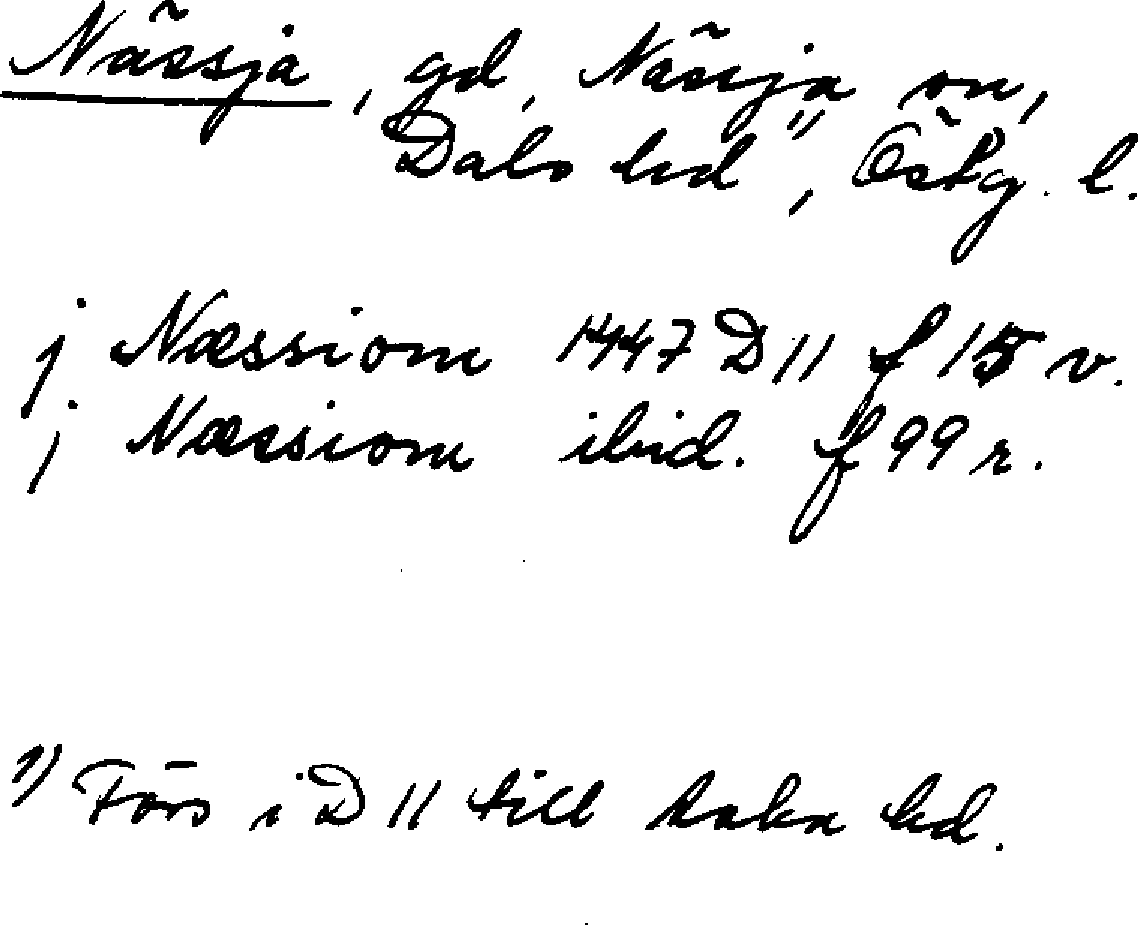 Nässja, gd, Nässja sn,
Dals hd ¹⁾, Östg. l.
j Næssiom 1447 D 11 f 15 v.
j Næssiom ibid. f 99 r.
¹⁾ Förs i D 11 till Aska hd.